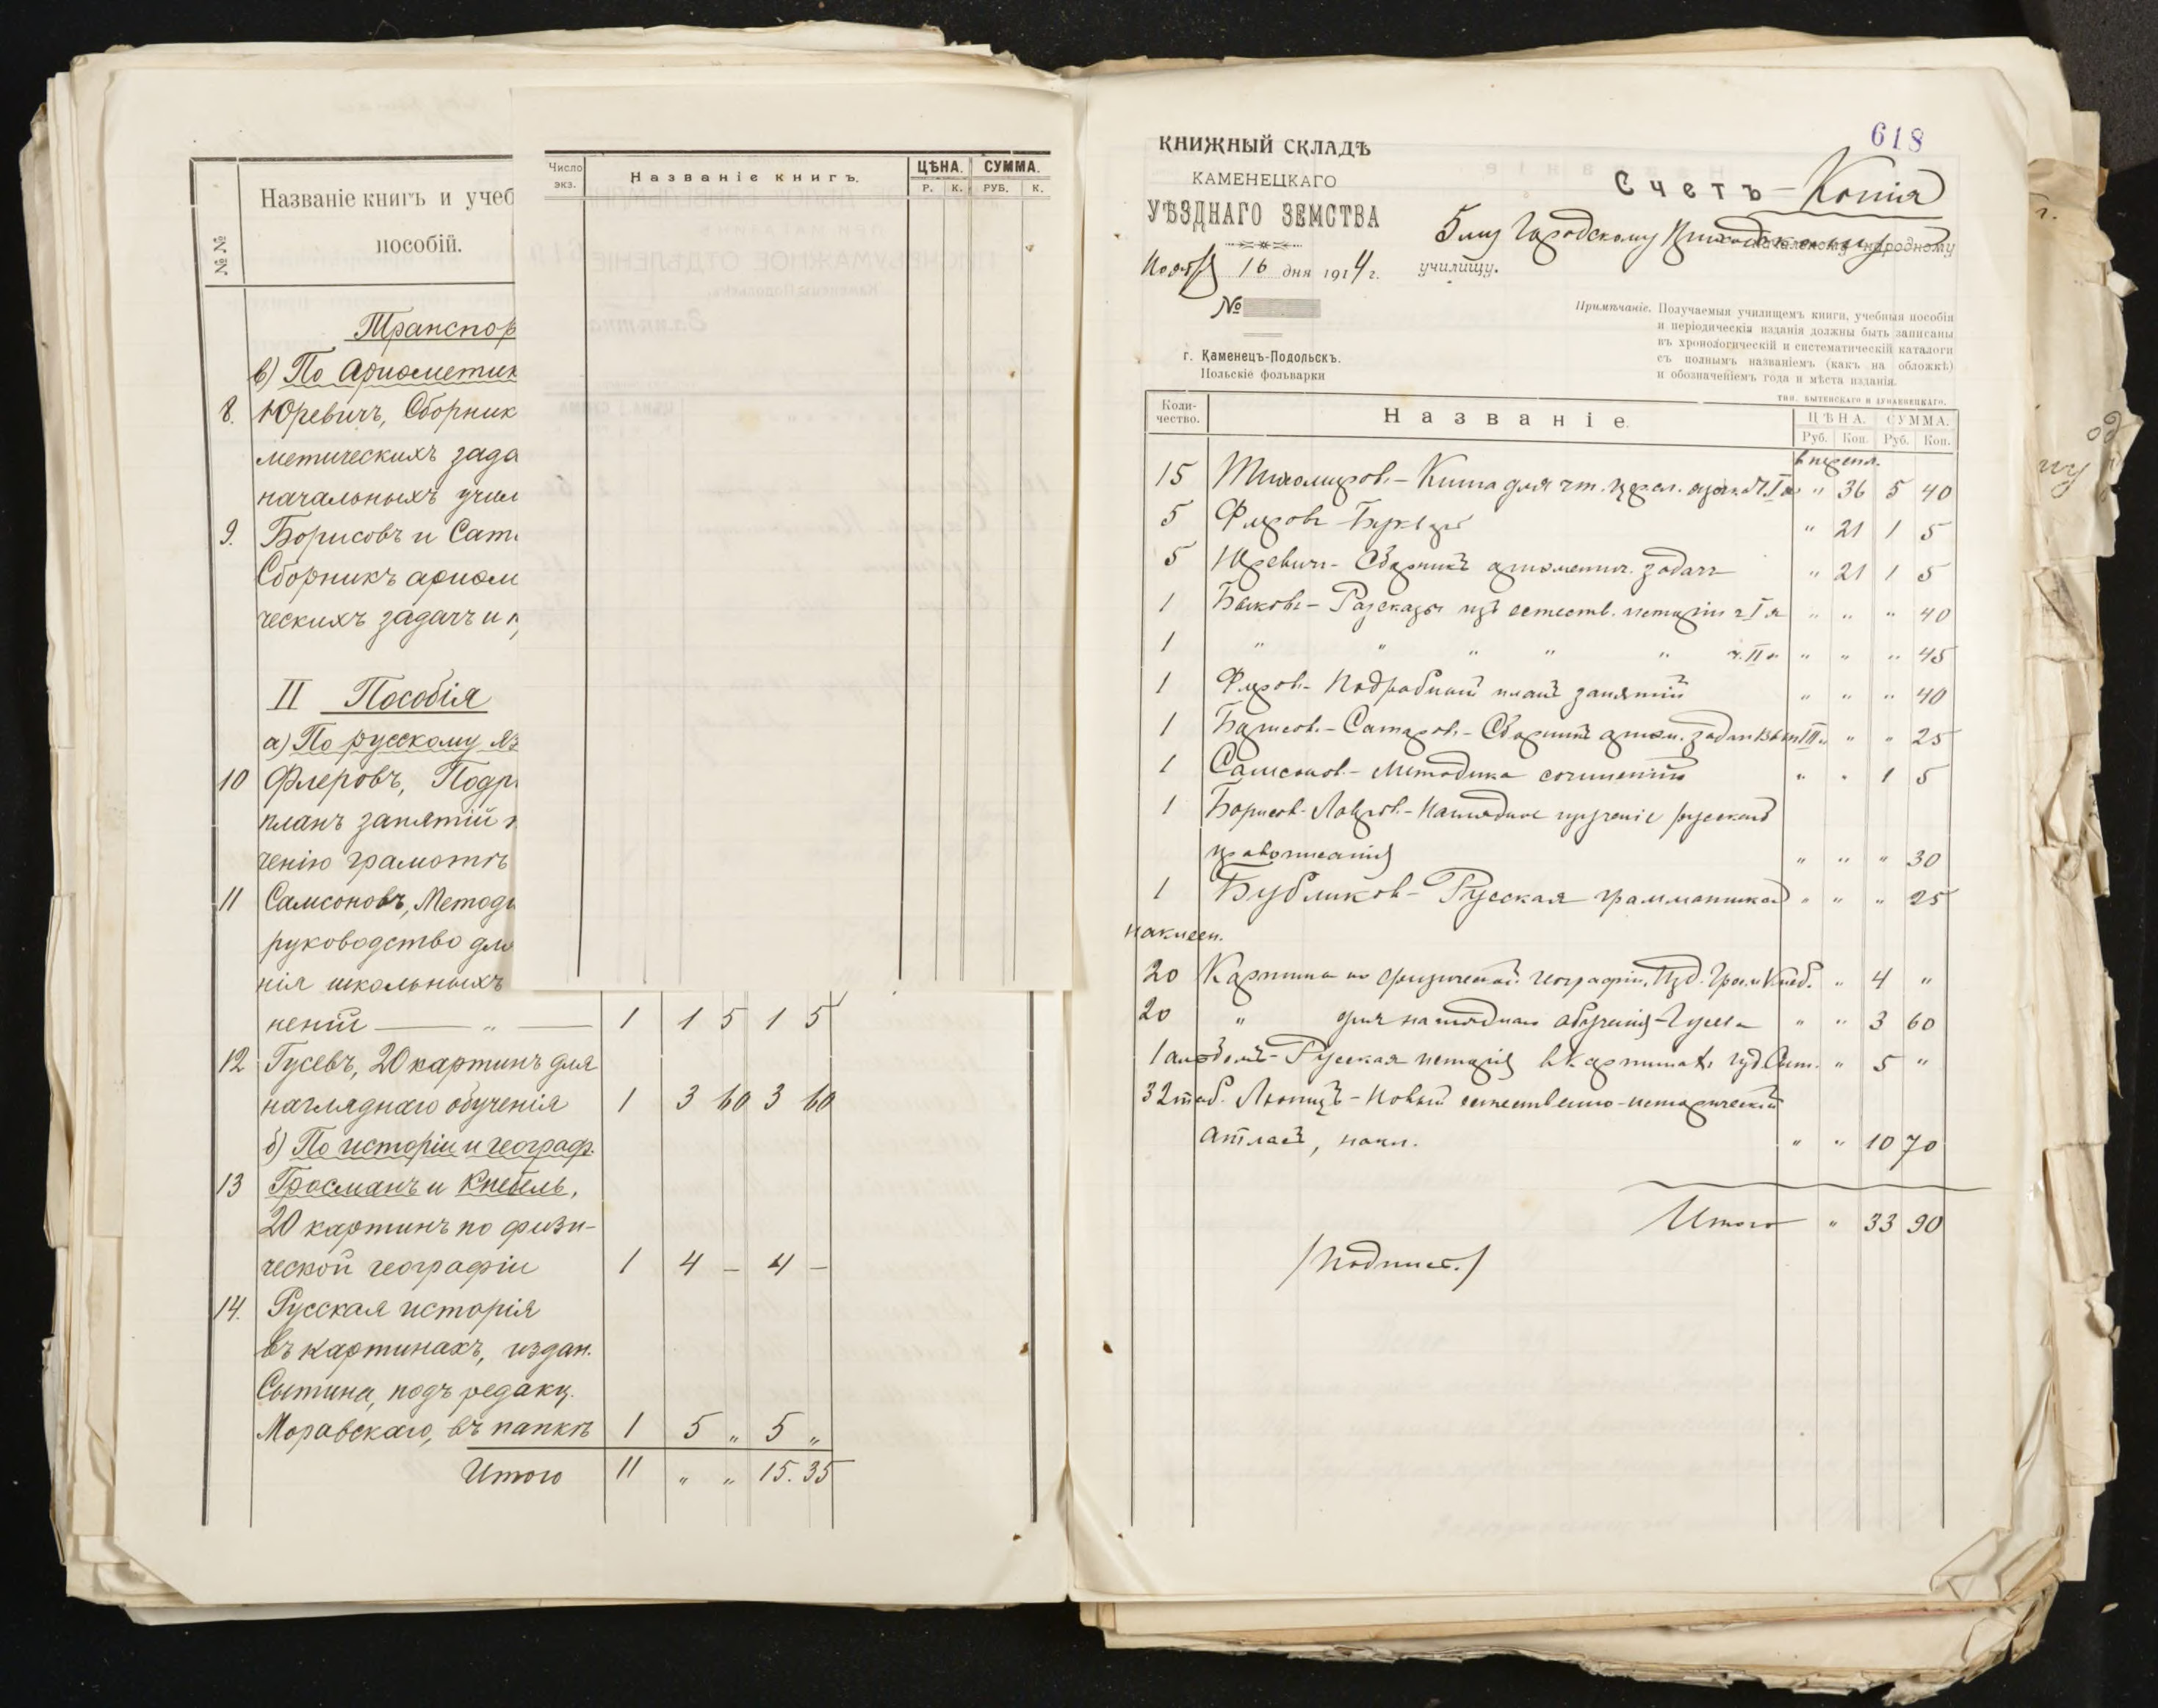 № №
Названіе книгъ и учеб
пособій.
Транспор
в) По Ариѳметик
8. Юревичъ, Сборник
метическихъ зада
начальныхъ учил
9. Борисовъ и Сат
Сборникъ ариѳм
ческихъ задачъ и
II Пособія
а) По русскому яз
10 Флеровъ, Подр
планъ занятій
ченію грамотѣ
11 Самсоновъ, Метод
руководство для
нія школьныхъ
неній — „ — 1 1 5 1 5
12 Гусевъ, 20 картинъ для
нагляднаго обученія 1 3 60 3 60
б) По исторіи и географ.
13 Гросманъ и Кнебель,
20 картинъ по физи-
ческой географіи 1 4 — 4 —
14. Русская исторія
въ картинахъ, издан.
Сытина, подъ редакц.
Моравскаго, въ папкѣ 1 5 „ 5 „
Итого 11 „ „ 15.35
Число экз. Названіе книгъ. ЦѢНА. СУММА.
Р. К. РУБ. К.
618
КНИЖНЫЙ СКЛАДЪ
КАМЕНЕЦКАГО
УѢЗДНАГО ЗЕМСТВА
Ноябр 16 дня 1914 г.
№
г. Каменецъ-Подольскъ.
Польскіе фольварки
Счетъ – Копія
5му Городскому Приходскому начальному народному
училищу.
Примѣчаніе. Получаемыя училищемъ книги, учебныя пособія
и періодическія изданія должны быть записаны
въ хронологическій и систематическій каталоги
съ полнымъ названіемъ (какъ на обложкѣ)
и обозначеніемъ года и мѣста изданія.
Коли-чество. Названіе. ЦѢНА. СУММА.
Руб. Коп. Руб. Коп.
в перепл.
15 Тихомиров. – Книга для чт. церк. слав. ч. I „ 36 5 40
5 Флеровъ – Букварь „ 21 1 5
5 Юревич – Сборникъ ариѳметич. задачъ „ 21 1 5
1 Быковъ – Разсказы изъ естеств. исторіи ч I я „ „ „ 40
1 „ „ „ „ „ ч. II я „ „ „ 45
1 Флеров – Подробный планъ занятій „ „ „ 40
1 Борисов. – Сатаров. – Сборникъ ариѳм. задач III „ „ 25
1 Самсонов. – Методика сочиненій „ „ 1 5
1 Борисов. Лавров. – Наглядное изученіе русскаго
правописанія „ „ „ 30
1 Бубликов – Русская грамматика „ „ „ 25
наклеен.
20 Картины по физической географіи. Изд. Гросм Кнеб. „ 4 „
20 „ для нагляднаго обученія – Гусева „ „ 3 60
1 альбомъ – Русская исторія в картинахъ изд. Сыт. „ 5 „
32 таб. – Новый естественно-историческій
атласъ, накл. „ „ 10 70
Итого „ 33 90
/Подпис./